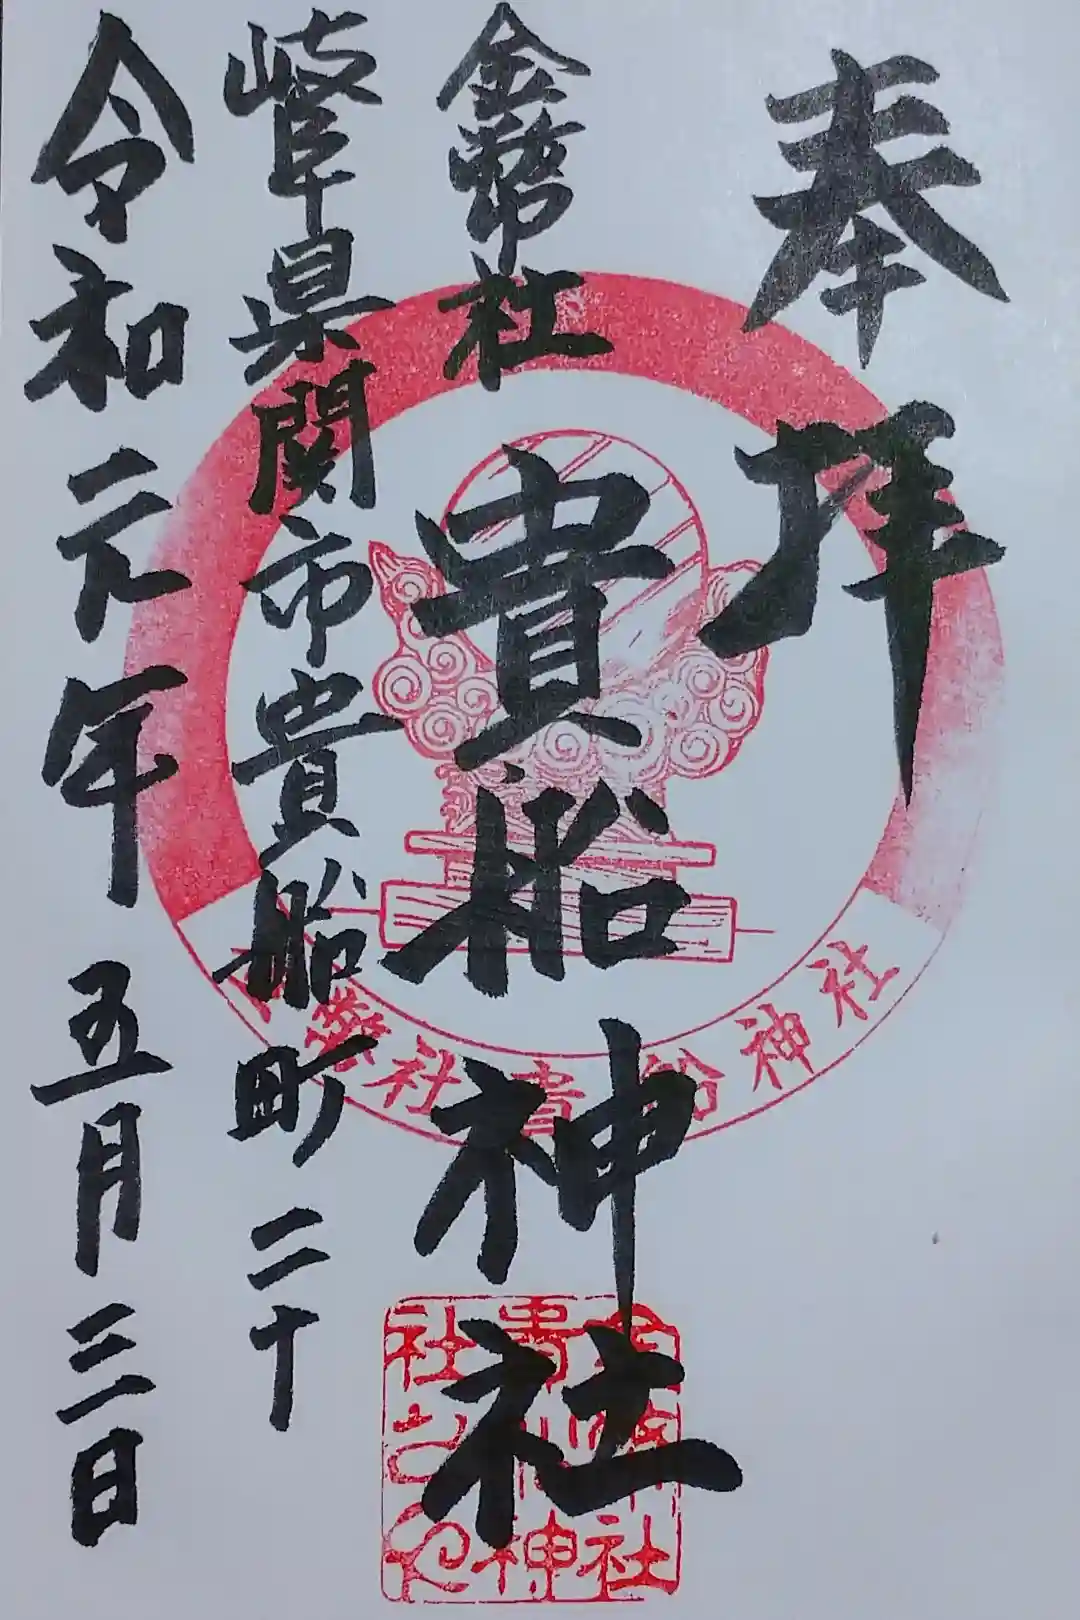 奉拝
金幣社
貴船神社
岐阜県関市貴船町二十
令和元年五月三日
金幣社貴船神社
金幣社
貴船神
社